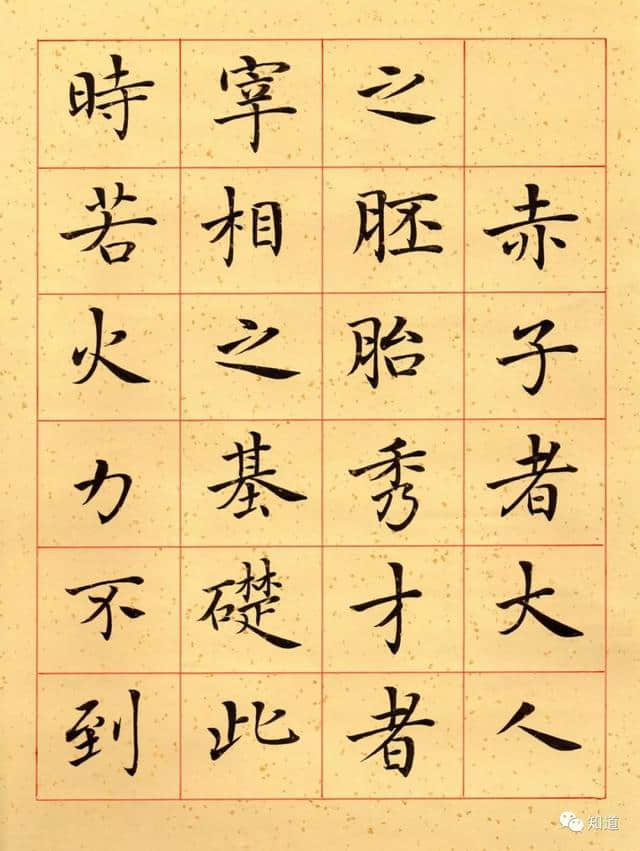 赤子者大人
之胚胎秀才者
宰相之基礎此
時若火力不到
知道